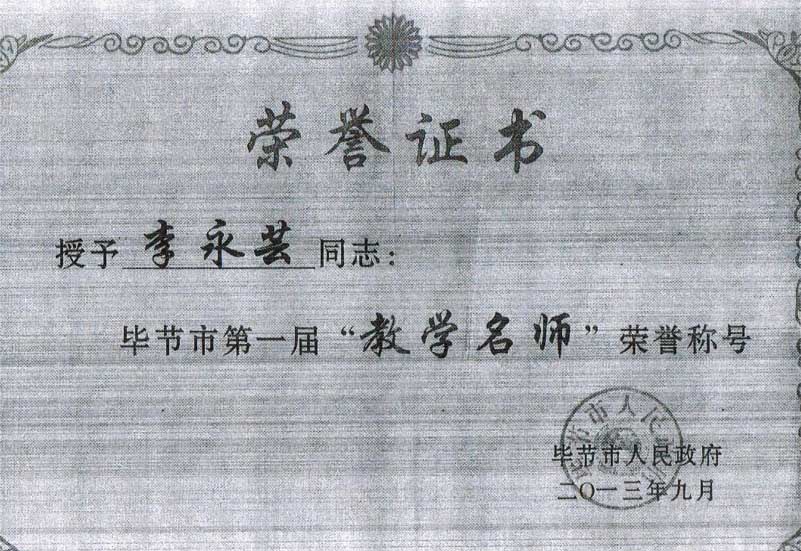 荣誉证书
授予李永芸同志：
毕节市第一届“教学名师”荣誉称号
毕节市人民政府
二〇一三年九月